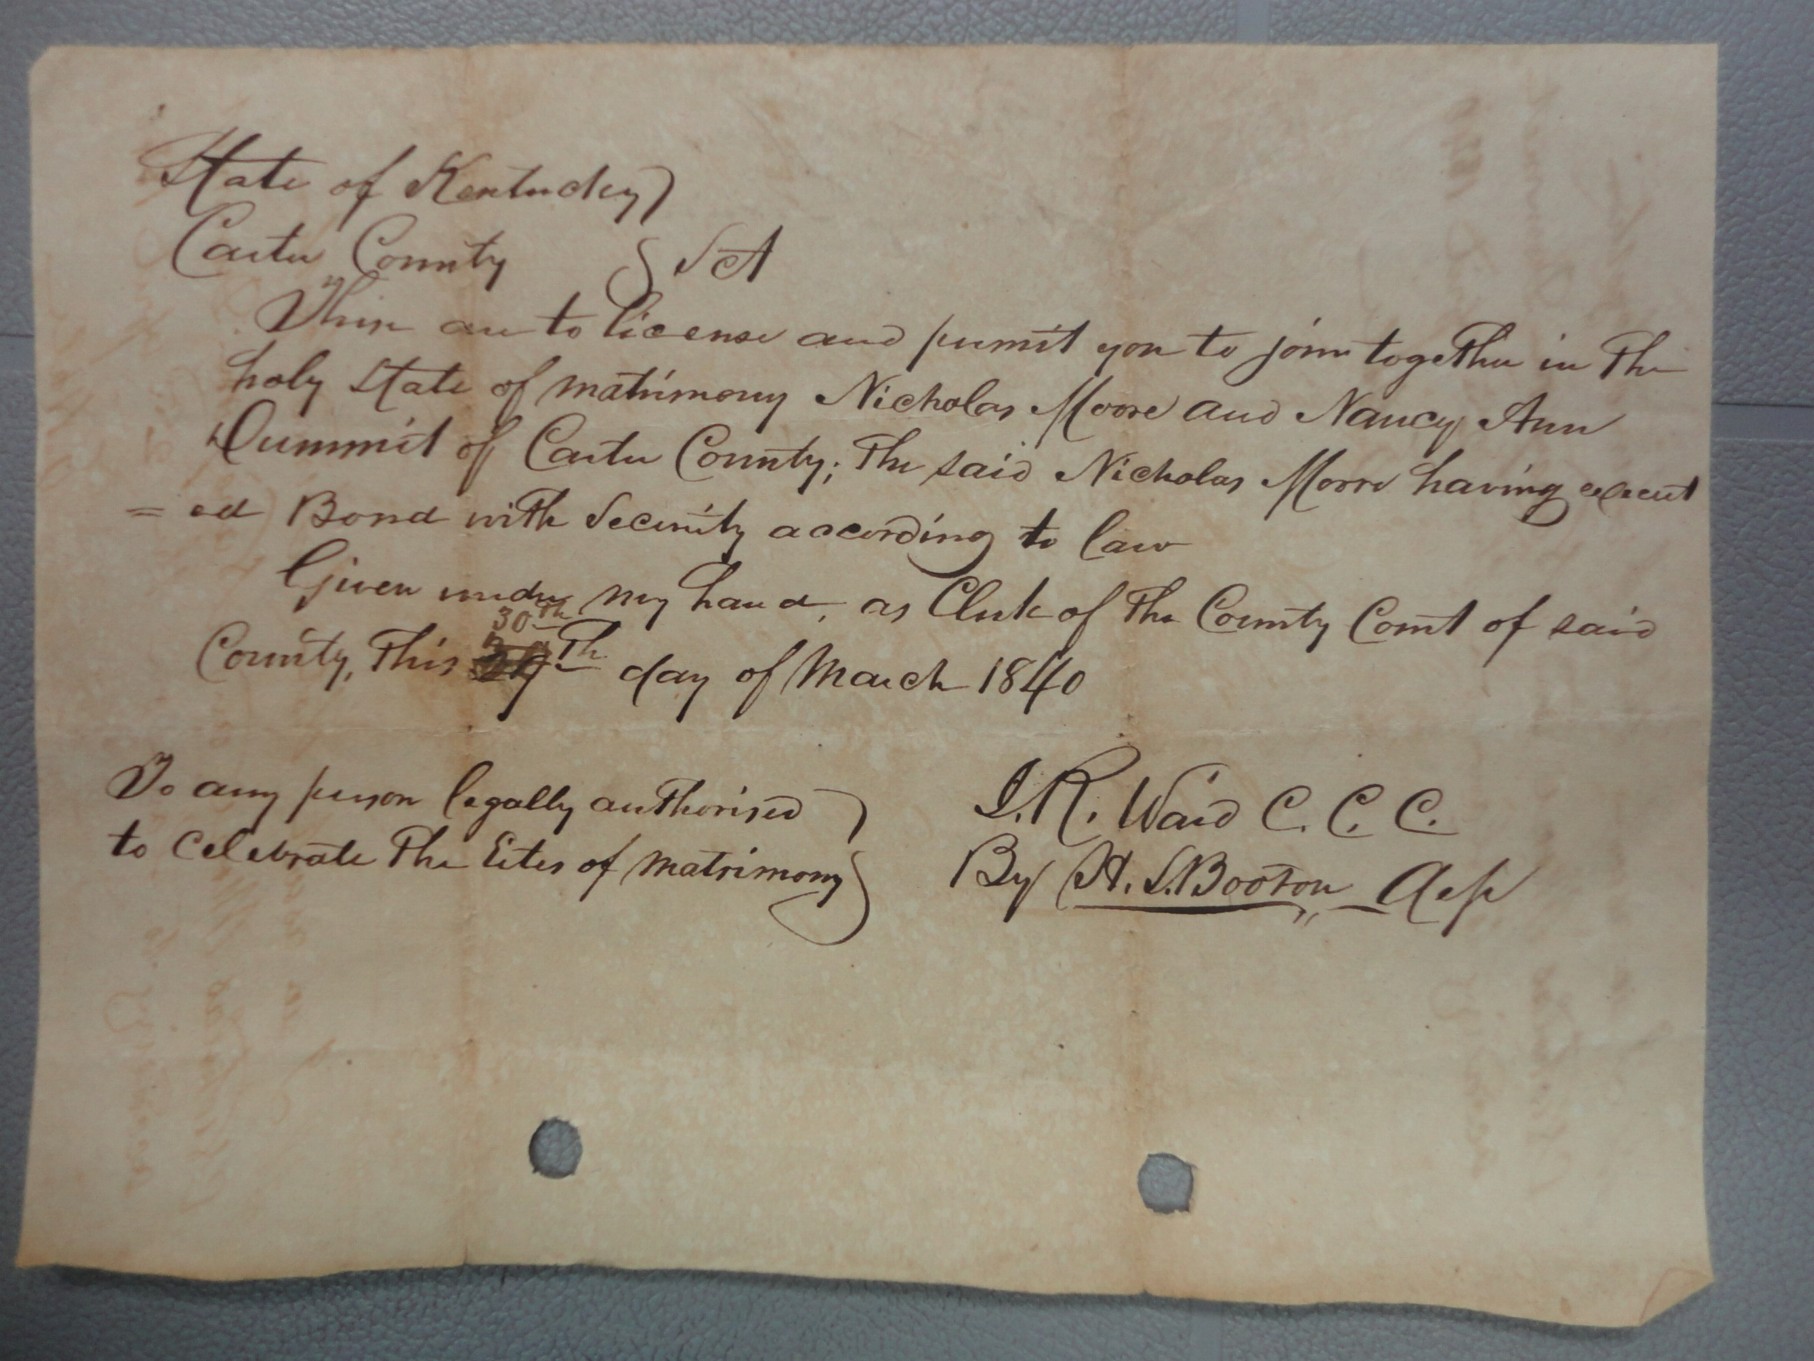 State of Kentucky
Carter County } Sct
These are to license and permit you to join together in the
holy state of matrimony Nicholas Moore and Nancy Ann
Dummit of Carter County; The said Nicholas Moore having execut
= ed Bond with Security according to law
Given under my hand, as Clerk of the County Court of said
30th
County, this th day of March 1840
To any person legally authorised
to celebrate the Rites of matrimony }
J. R. Ward C. C. C.
By H. S. Booton Dep